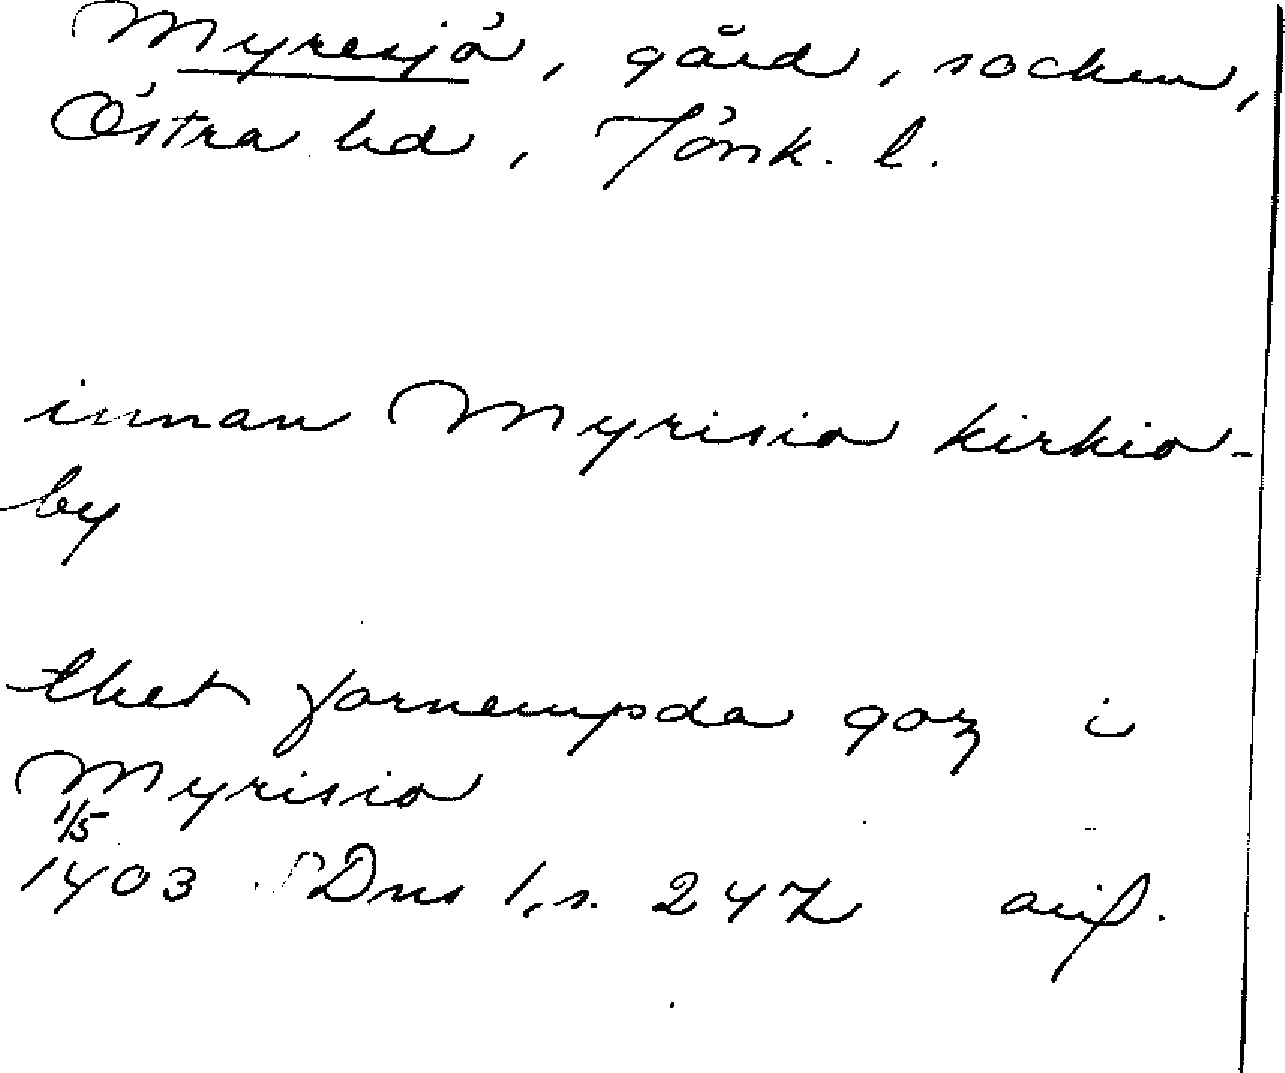 Myresjö, gård, socken,
Östra hd, Jönk. l.
innan Myrisio kirkio-
by
thet fornempda goz i
Myrisio
1/5
1403 SDns 1, s. 242 avif.